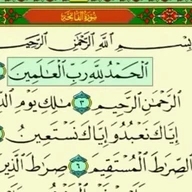 سُورَةُ الْفَاتِحَةِ
بِسْمِ اللَّهِ الرَّحْمَٰنِ الرَّحِيمِ
الْحَمْدُ لِلَّهِ رَبِّ الْعَٰلَمِينَ
الرَّحْمَٰنِ الرَّحِيمِ ٣ مَٰلِكِ يَوْمِ الد
إِيَّاكَ نَعْبُدُ وَإِيَّاكَ نَسْتَعِينُ
الصِّرَٰطَ الْمُسْتَقِيمَ ٦ صِرَٰطَ الَّذِينَ